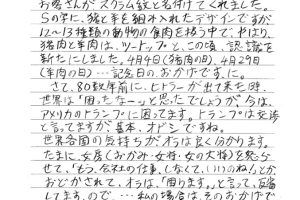 お客さんがスクラム紋と名付けてくれました。
Sの字に、猪と羊を組み入れたデザインですが
12〜13種類の動物の食肉を扱う中で、やはり、
猪肉と羊肉は、ツートップと、この頃、認識を
新たにしました。4月4日(猪肉の日)、4月29日
(羊肉の日)…記念日のおかげです。に。
さて、80数年前に、ヒトラーが出て来た時、
世界は「困ったなーっ」と思ったでしょうが、今は、
アメリカのトランプに困ってます。トランプは交渉
と言ってますが、基本、オドシですね。
世界各国の気持ちがオラは良く分かります。
たまに女房(おかみ・女将・女の大将)を怒らせ
て、「もう、会社の仕事、しなくて、いいのね」とか
おどかされて、オラは、「困ります。」と言って、反省
してます。ので、…私の場合は、そのおかげで